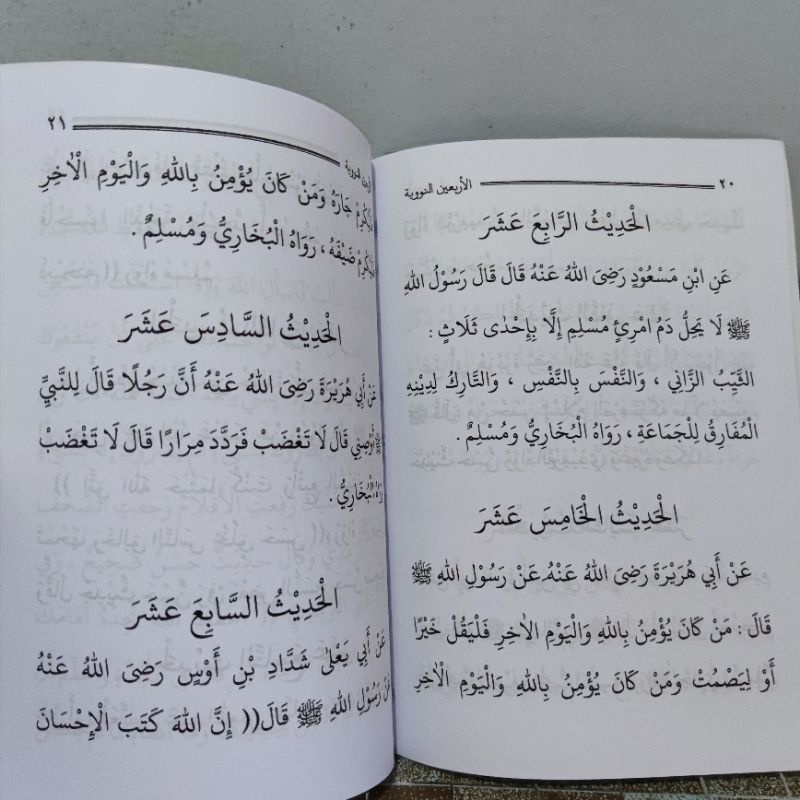 ٢٠ الأربعين النووية
الْحَدِيْثُ الرَّابِعَ عَشَرَ
عَنِ ابْنِ مَسْعُودٍ رَضِىَ اللهُ عَنْهُ قَالَ قَالَ رَسُوْلُ اللهِ
ﷺ لَا يَحِلُّ دَمُ امْرِئٍ مُسْلِمٍ إِلَّا بِإِحْدَى ثَلَاثٍ :
الثَّيِّبُ الزَّانِي ، وَالنَّفْسَ بِالنَّفْسِ ، وَالتَّارِكُ لِدِيْنِهِ
الْمُفَارِقُ لِلْجَمَاعَةِ ، رَوَاهُ الْبُخَارِيُّ وَمُسْلِمٌ .
الْحَدِيْثُ الْخَامِسَ عَشَرَ
عَنْ أَبِي هُرَيْرَةَ رَضِىَ اللهُ عَنْهُ عَنْ رَسُوْلِ اللهِ ﷺ
قَالَ : مَنْ كَانَ يُؤْمِنُ بِاللهِ وَالْيَوْمِ الْاٰخِرِ فَلْيَقُلْ خَيْرًا
أَوْ لِيَصْمُتْ وَمَنْ كَانَ يُؤْمِنُ بِاللهِ وَالْيَوْمِ الْاٰخِرِ
٢١
جَارَهُ وَمَنْ كَانَ يُؤْمِنُ بِاللهِ وَالْيَوْمِ الْاٰخِرِ
ضَيْفَهُ ، رَوَاهُ الْبُخَارِيُّ وَمُسْلِمٌ .
الْحَدِيْثُ السَّادِسَ عَشَرَ
عَنْ أَبِي هُرَيْرَةَ رَضِىَ اللهُ عَنْهُ أَنَّ رَجُلًا قَالَ لِلنَّبِيِّ
ﷺ أَوْصِنِي قَالَ لَا تَغْضَبْ فَرَدَّدَ مِرَارًا قَالَ لَا تَغْضَبْ
الْبُخَارِيُّ .
الْحَدِيْثُ السَّابِعَ عَشَرَ
عَنْ أَبِي يَعْلَى شَدَّادِ بْنِ أَوْسٍ رَضِىَ اللهُ عَنْهُ
عَنْ رَسُوْلِ اللهِ ﷺ قَالَ(( إِنَّ اللهَ كَتَبَ الْإِحْسَانَ